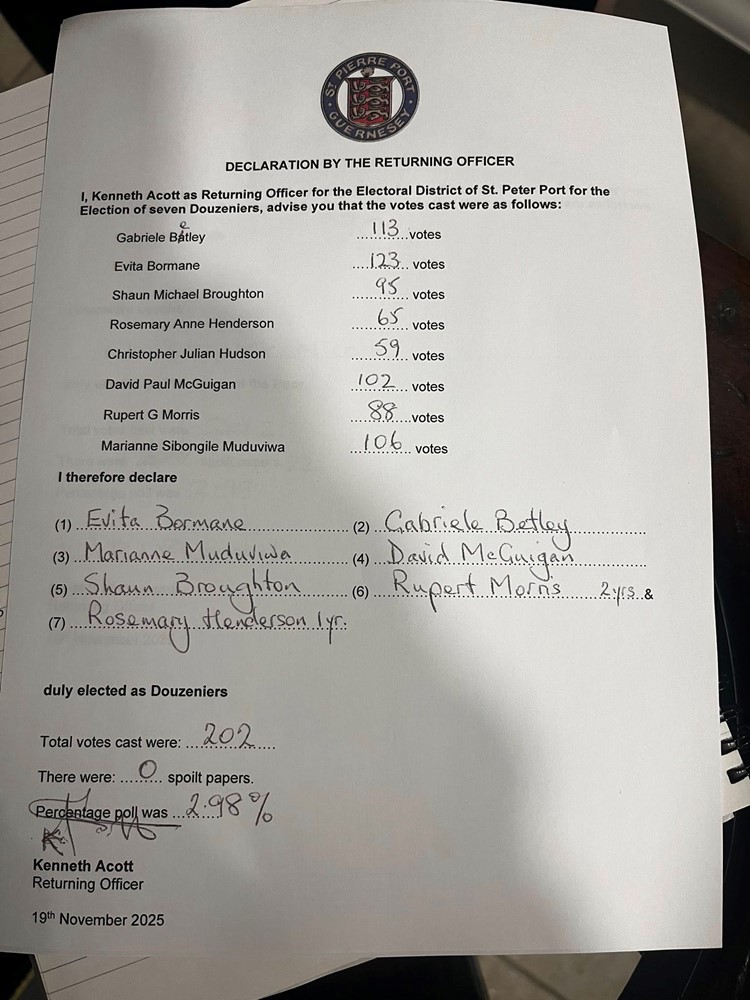 ST PIERRE PORT
GUERNESEY
DECLARATION BY THE RETURNING OFFICER
I, Kenneth Acott as Returning Officer for the Electoral District of St. Peter Port for the
Election of seven Douzeniers, advise you that the votes cast were as follows:
Gabriele Betley 113 votes
Evita Bormane 123 votes
Shaun Michael Broughton 95 votes
Rosemary Anne Henderson 65 votes
Christopher Julian Hudson 59 votes
David Paul McGuigan 102 votes
Rupert G Morris 88 votes
Marianne Sibongile Muduviwa 106 votes
I therefore declare
(1) Evita Bormane (2) Gabriele Betley
(3) Marianne Muduviwa (4) David McGuigan
(5) Shaun Broughton (6) Rupert Morris 2yrs &
(7) Rosemary Henderson 1yr.
duly elected as Douzeniers
Total votes cast were: 202
There were: 0 spoilt papers.
Percentage poll was 2.98%
Kenneth Acott
Returning Officer
19th November 2025